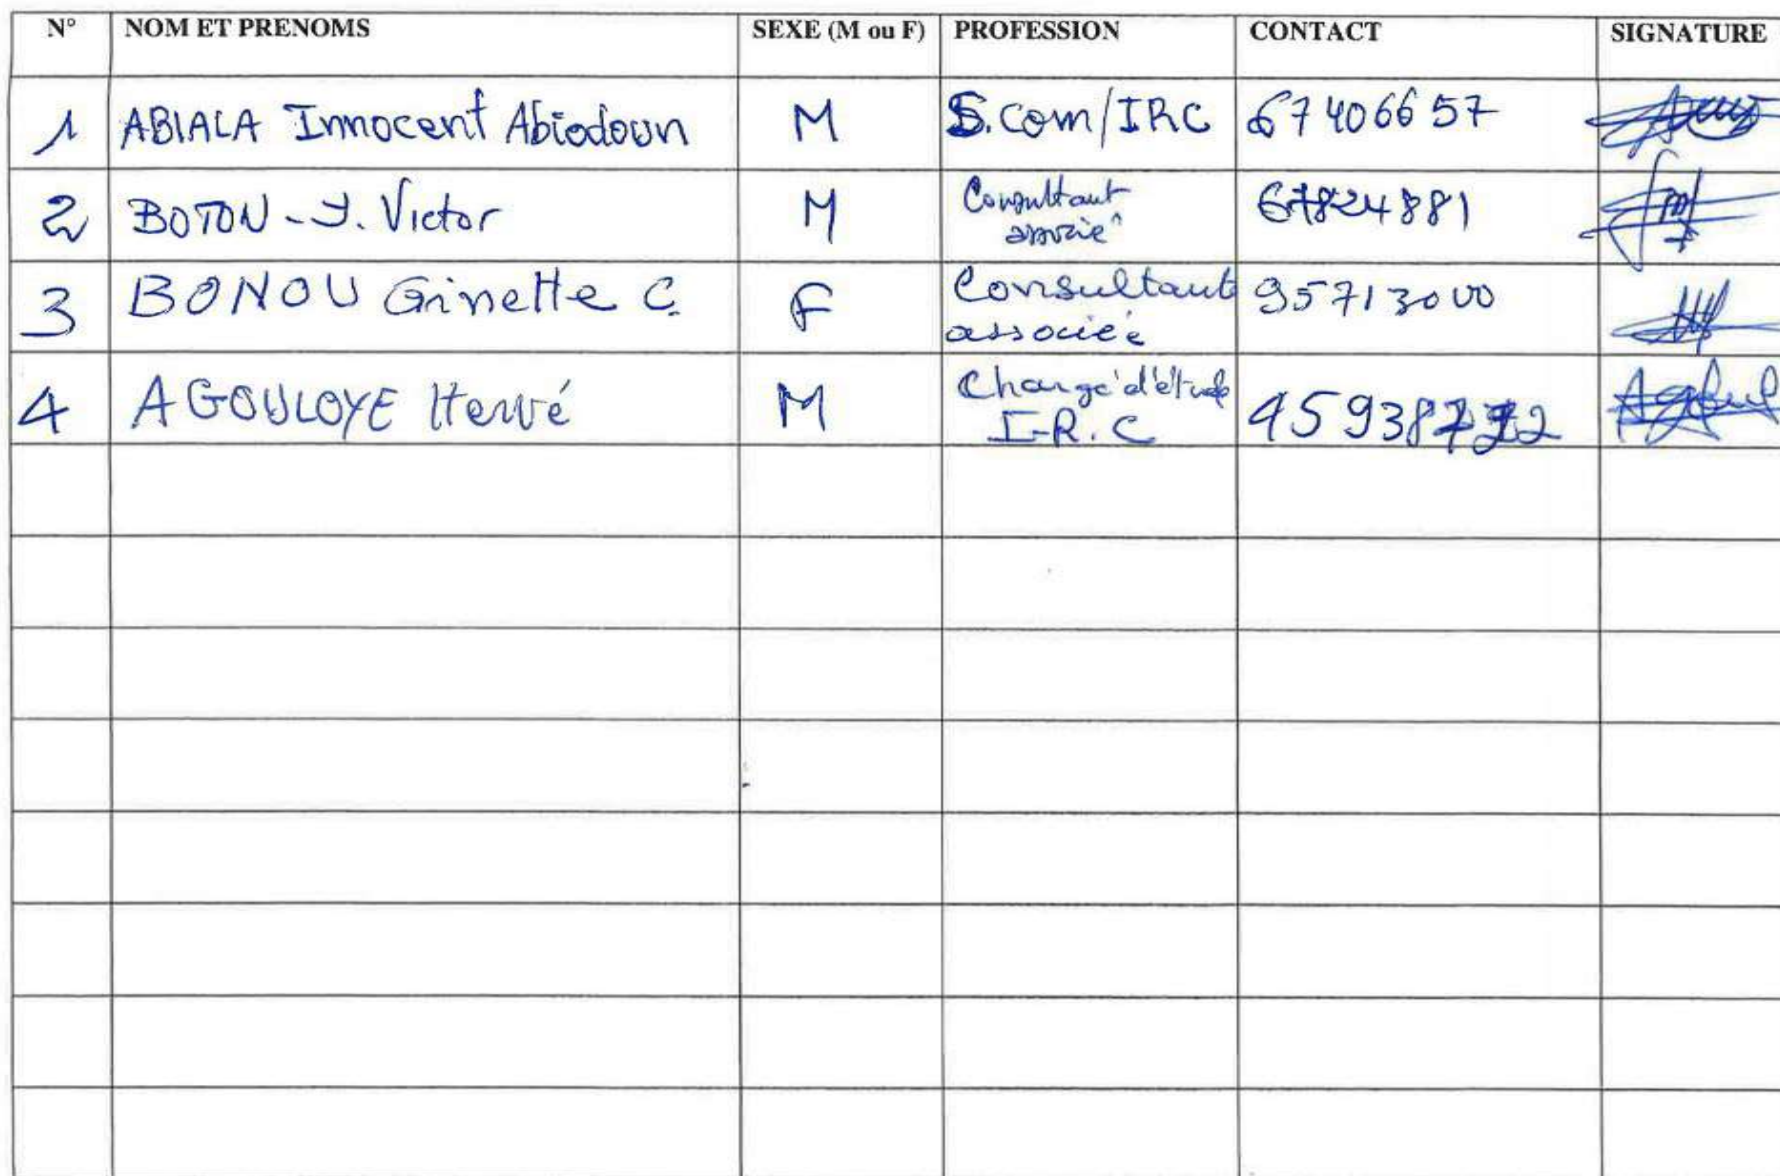 N° NOM ET PRENOMS SEXE (M ou F) PROFESSION CONTACT SIGNATURE
1 ABIALA Innocent Abiodoun M S.com/IRC 67406657
2 BOTON - J. Victor M Consultant associé 67824881
3 BONOU Ginette C. F Consultante associée 95713000
4 AGOULOYE Hervé M Chargé d'étude I.R.C